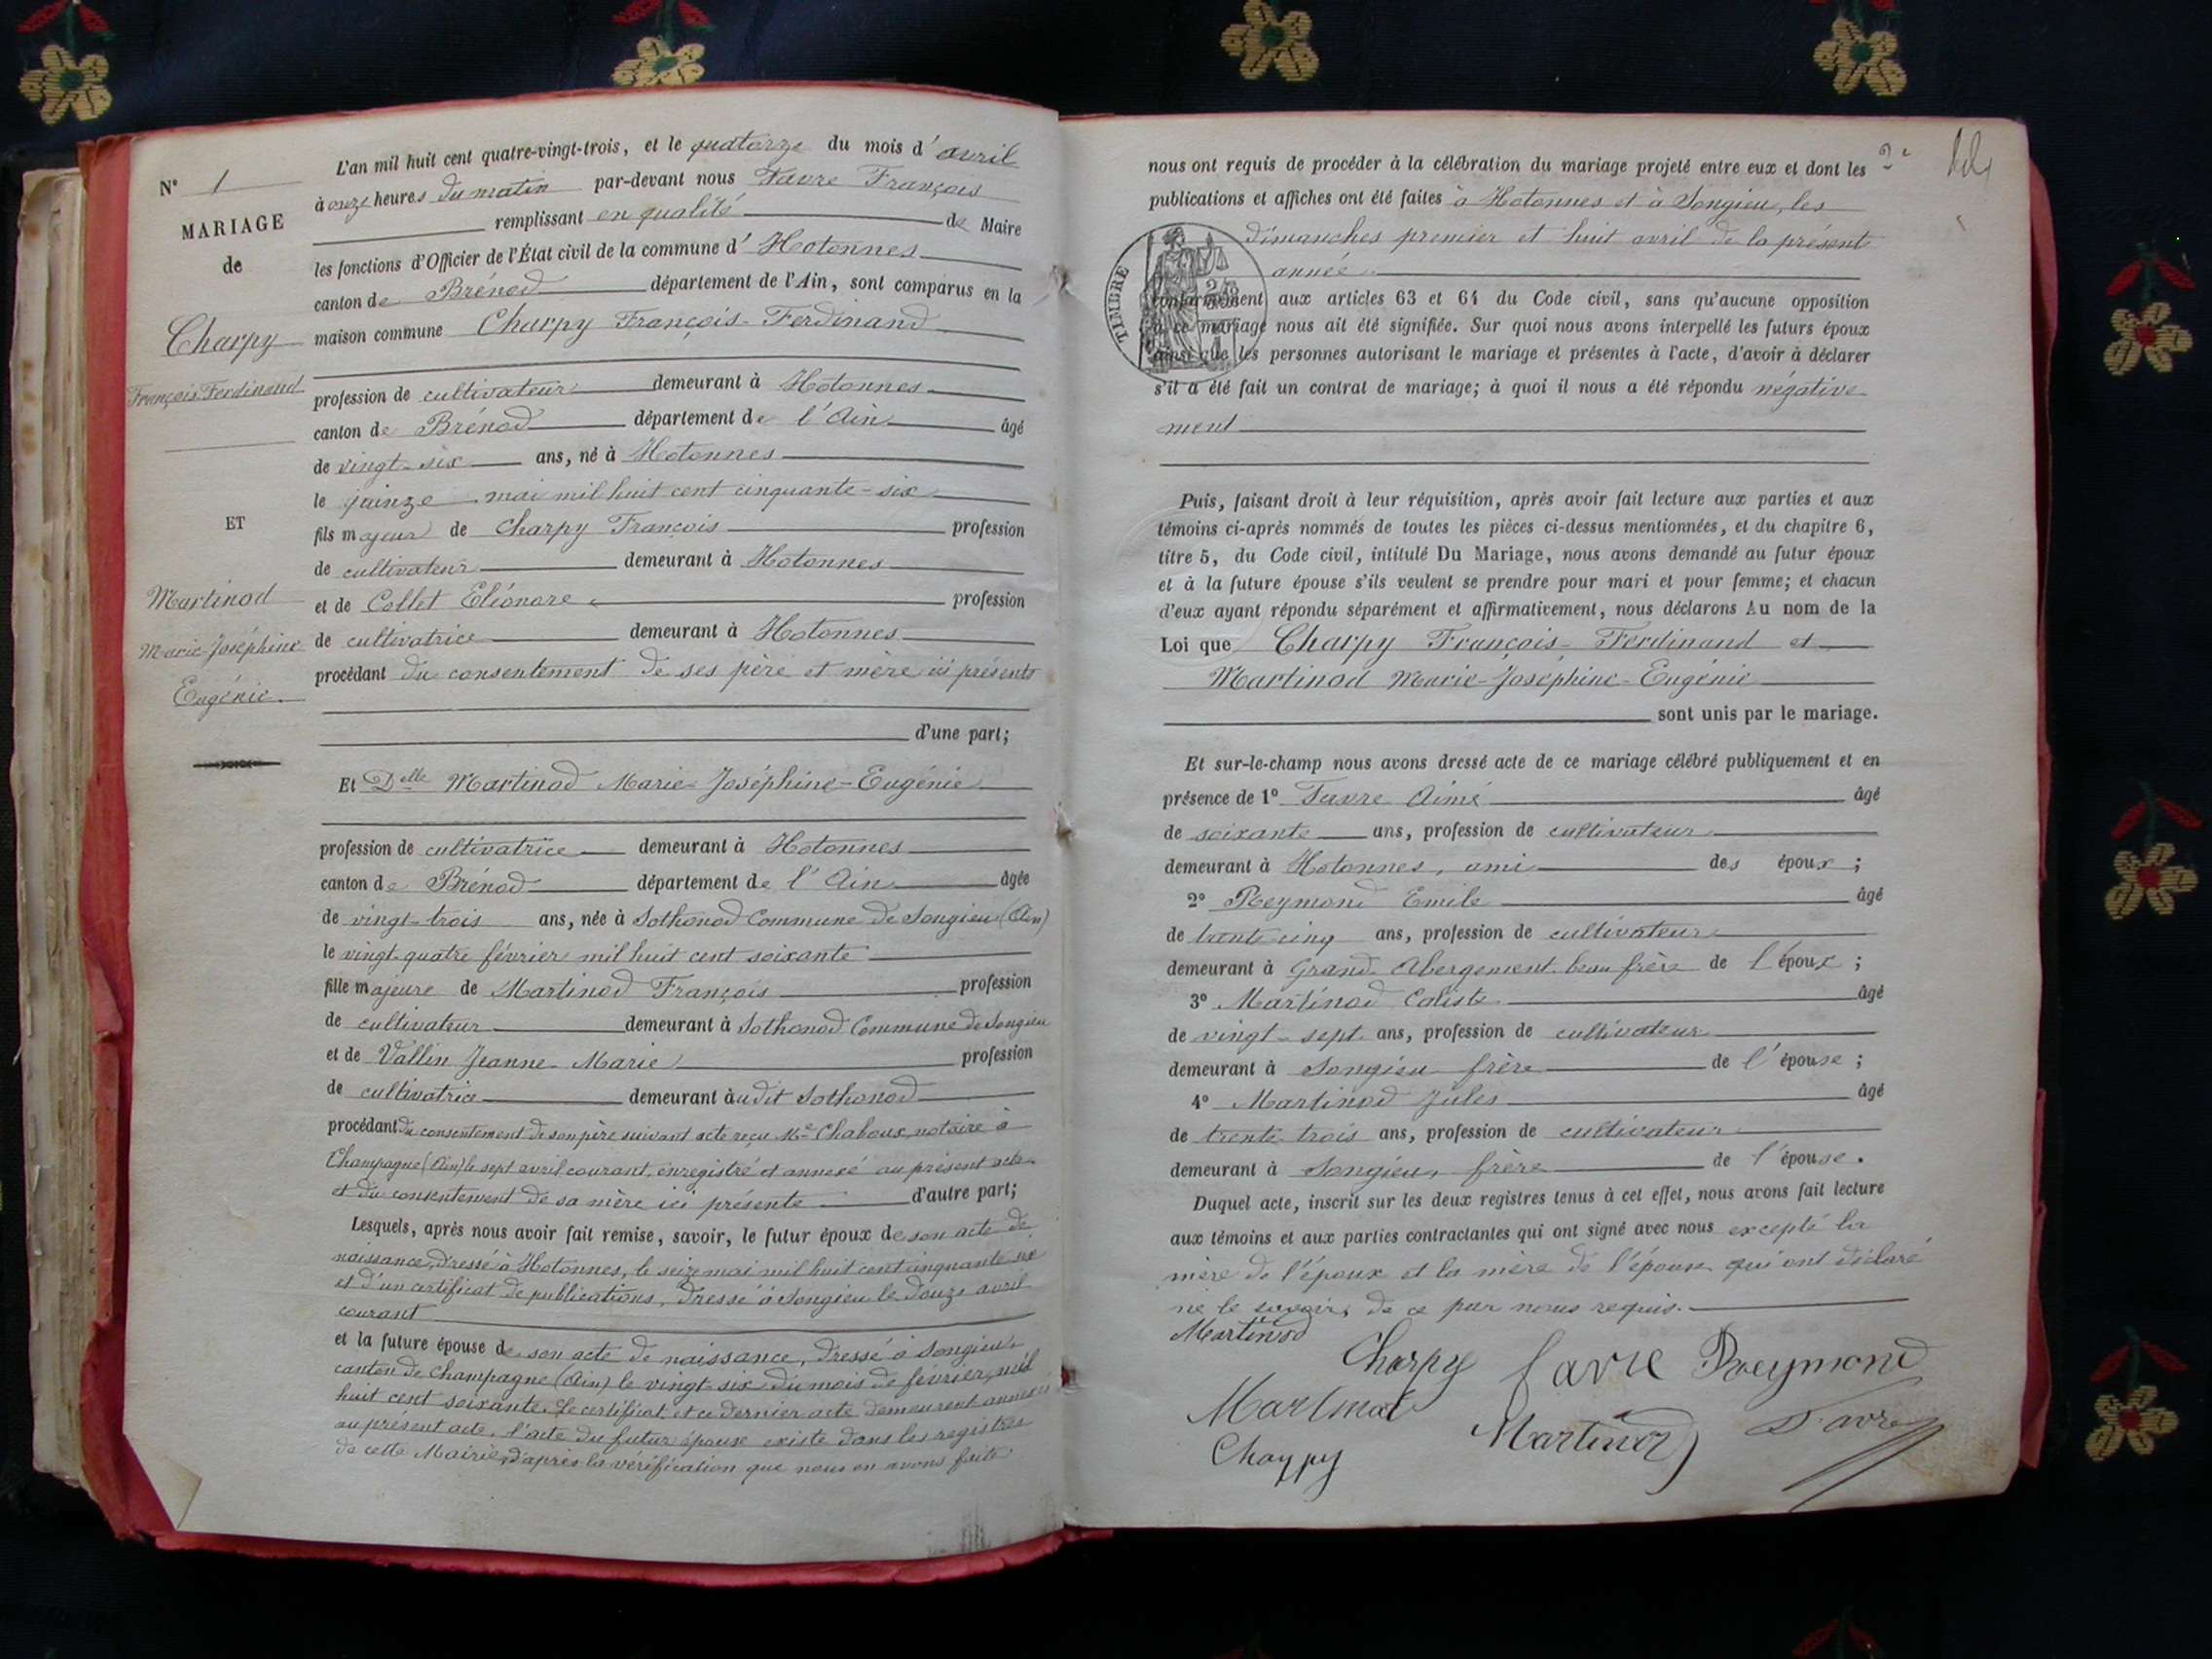 N° 1
MARIAGE
de
Charpy
François-Ferdinand
ET
Martinod
Marie-Joséphine
Eugénie.
L'an mil huit cent quatre-vingt-trois, et le quatorze du mois d'avril
à onze heures du matin par-devant nous Favre François
remplissant en qualité de Maire
les fonctions d'Officier de l'État civil de la commune d'Hotonnes
canton de Brénod département de l'Ain, sont comparus en la
maison commune Charpy François-Ferdinand
profession de cultivateur demeurant à Hotonnes
canton de Brénod département de l'Ain âgé
de vingt-six ans, né à Hotonnes
le quinze mai mil huit cent cinquante-six
fils majeur de Charpy François profession
de cultivateur demeurant à Hotonnes
et de Collet Eléonore profession
de cultivatrice demeurant à Hotonnes
procédant du consentement de ses père et mère ici présents
d'une part;
Et Delle Martinod Marie-Joséphine-Eugénie
profession de cultivatrice demeurant à Hotonnes
canton de Brénod département de l'Ain âgée
de vingt-trois ans, née à Sothonod Commune de Songieu (Ain)
le vingt-quatre février mil huit cent soixante
fille majeure de Martinod François profession
de cultivateur demeurant à Sothonod Commune de Songieu
et de Vallin Jeanne-Marie profession
de cultivatrice demeurant audit Sothonod
procédant du consentement de son père suivant acte reçu Me Chaboux, notaire à
Champagne (Ain) le sept avril courant, enregistré et annexé au présent acte
et du consentement de sa mère ici présente d'autre part;
Lesquels, après nous avoir fait remise, savoir, le futur époux de son acte de
naissance, dressé à Hotonnes, le seize mai mil huit cent cinquante six
et d'un certificat de publications, dressé à Songieu le douze avril
courant
et la future épouse de son acte de naissance, dressé à Songieu
canton de Champagne (Ain) le vingt-six du mois de février, mil
huit cent soixante. Le certificat et ce dernier acte demeurent annexés
au présent acte, l'acte du futur époux existe dans les registres
de cette Mairie, d'après la vérification que nous en avons faite
nous ont requis de procéder à la célébration du mariage projeté entre eux et dont les
publications et affiches ont été faites à Hotonnes et à Songieu, les
dimanches premier et huit avril de la présente
année
TIMBRE
conformément aux articles 63 et 64 du Code civil, sans qu'aucune opposition
à ce mariage nous ait été signifiée. Sur quoi nous avons interpellé les futurs époux
ainsi que les personnes autorisant le mariage et présentes à l'acte, d'avoir à déclarer
s'il a été fait un contrat de mariage; à quoi il nous a été répondu négative
ment
Puis, faisant droit à leur réquisition, après avoir fait lecture aux parties et aux
témoins ci-après nommés de toutes les pièces ci-dessus mentionnées, et du chapitre 6,
titre 5, du Code civil, intitulé Du Mariage, nous avons demandé au futur époux
et à la future épouse s'ils veulent se prendre pour mari et pour femme; et chacun
d'eux ayant répondu séparément et affirmativement, nous déclarons Au nom de la
Loi que Charpy François-Ferdinand et
Martinod Marie-Joséphine-Eugénie
sont unis par le mariage.
Et sur-le-champ nous avons dressé acte de ce mariage célébré publiquement et en
présence de 1° Favre Aimé âgé
de soixante ans, profession de cultivateur
demeurant à Hotonnes, ami des époux;
2° Reymond Emile âgé
de trente cinq ans, profession de cultivateur
demeurant à Grand Abergement beau frère de l'époux;
3° Martinod Caliste âgé
de vingt-sept ans, profession de cultivateur
demeurant à Songieu frère de l'épouse;
4° Martinod Jules âgé
de trente trois ans, profession de cultivateur
demeurant à Songieu, frère de l'épouse.
Duquel acte, inscrit sur les deux registres tenus à cet effet, nous avons fait lecture
aux témoins et aux parties contractantes qui ont signé avec nous excepté la
mère de l'époux et la mère de l'épouse qui ont déclaré
ne le savoir, de ce par nous requis.
Martinod
Charpy favre Reymond
Martinod Martinod Favre
Charpy